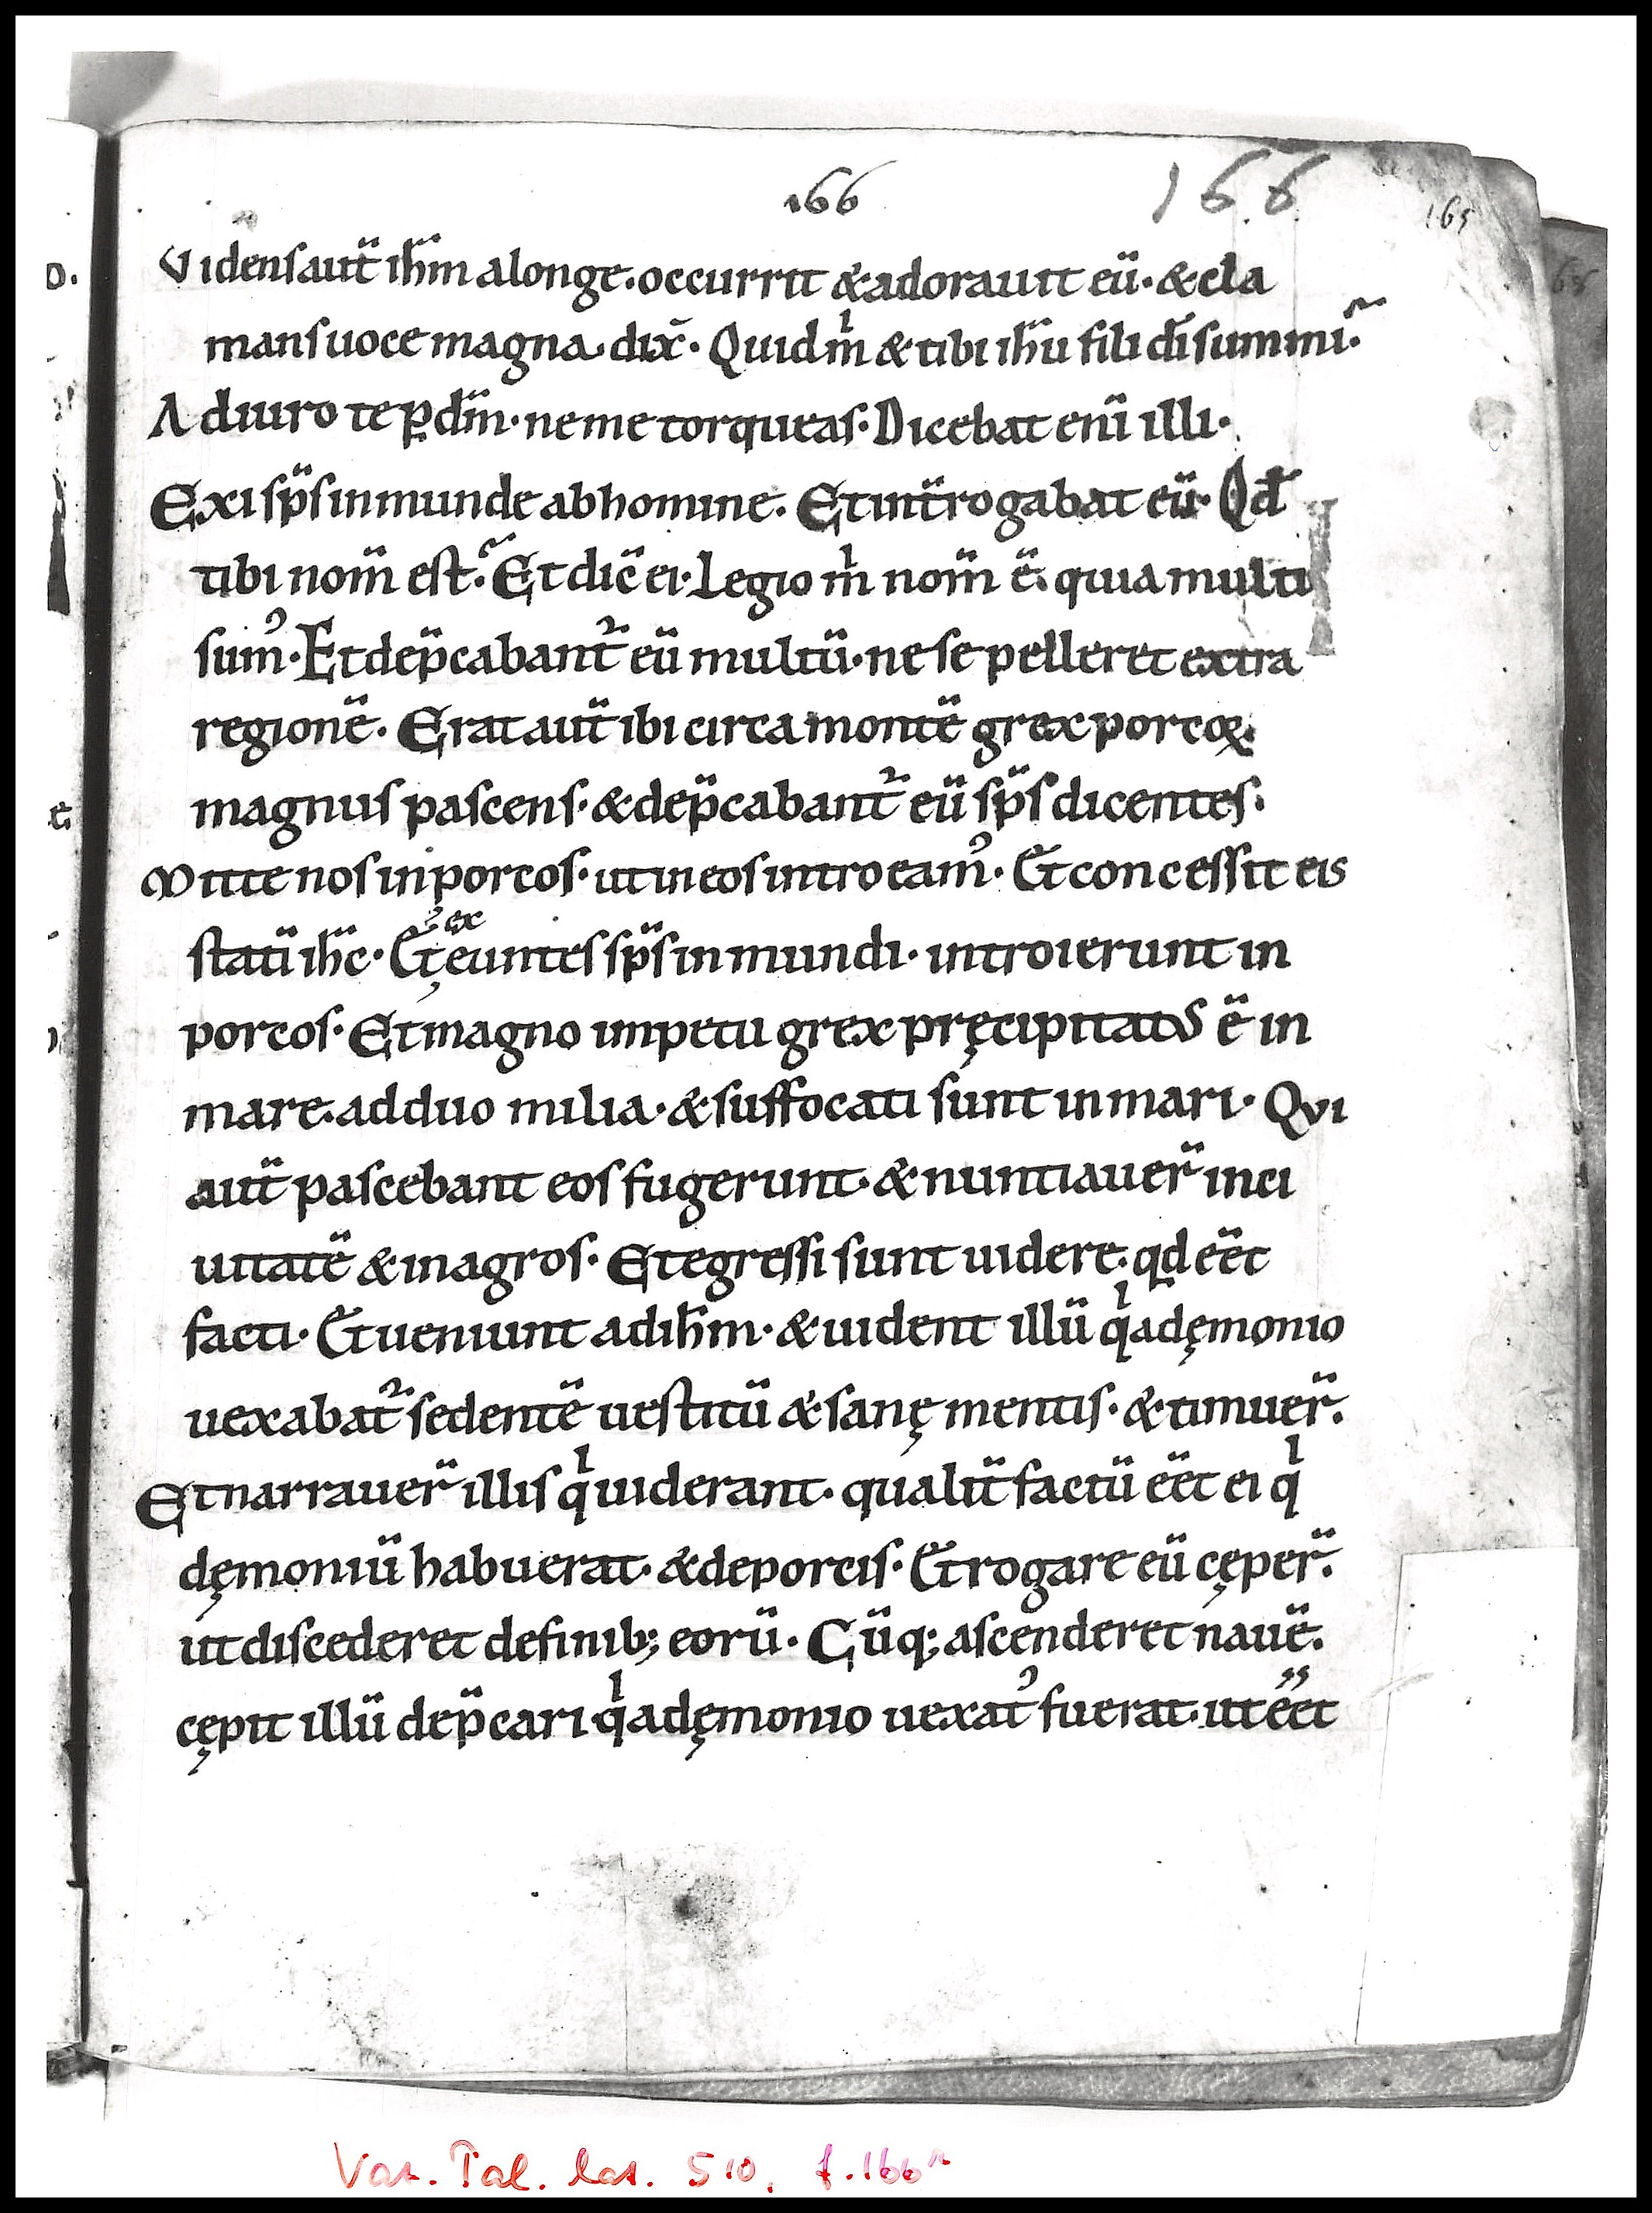 166 166 165
Vidensaut̄ ih̄m alonge. occurrit & adorauit eū. & cla
mans uoce magna. dix̄. Quid m̄ & tibi ih̄u fili dī summi.
Adiuro te ꝑ dm̄. ne me torqueas. Dicebat enī illi.
Exi sp̄s inmunde ab homine. Et int̄rogabat eū. Qd̄
tibi nom̄ est. Et dic̄ ei. Legio m̄ nom̄ ē. quia multi
sum᾽. Et dep̄cabant᷑ eū multū. ne se pelleret extra
regionē. Erat aut̄ ibi circa montē grex porcoꝝ.
magnus pascens. & dep̄cabant᷑ eū sp̄s dicentes.
Mitte nos in porcos. ut in eos introeam᾽. Et concessit eis
statī ih̄c. Et ex euntes sp̄s inmundi. introierunt in
porcos. Et magno impetu grex pręcipitatus ē in
mare. ad duo milia. & suffocati sunt in mari. Qui
aut̄ pascebant eos fugerunt. & nuntiauer̄ in ci
uitatē & in agros. Et egressi sunt uidere. qd eēt
facti. Et ueniunt ad ih̄m. & uident illū qͥ a dęmonio
uexabat᷑ sedentē uestitū & sanę mentis. & timuer̄.
Et narrauer̄ illis qͥ uiderant. qualit̄ factū eēt ei qͥ
dęmoniū habuerat. & de porcis. Et rogare eū cęper̄.
ut discederet de finib; eorū. Cūq; ascenderet nauē.
cępit illū dep̄cari. qͥ a dęmonio uexat᾽ fuerat. ut eēt
Vat. Pal. lat. 510, f. 166r